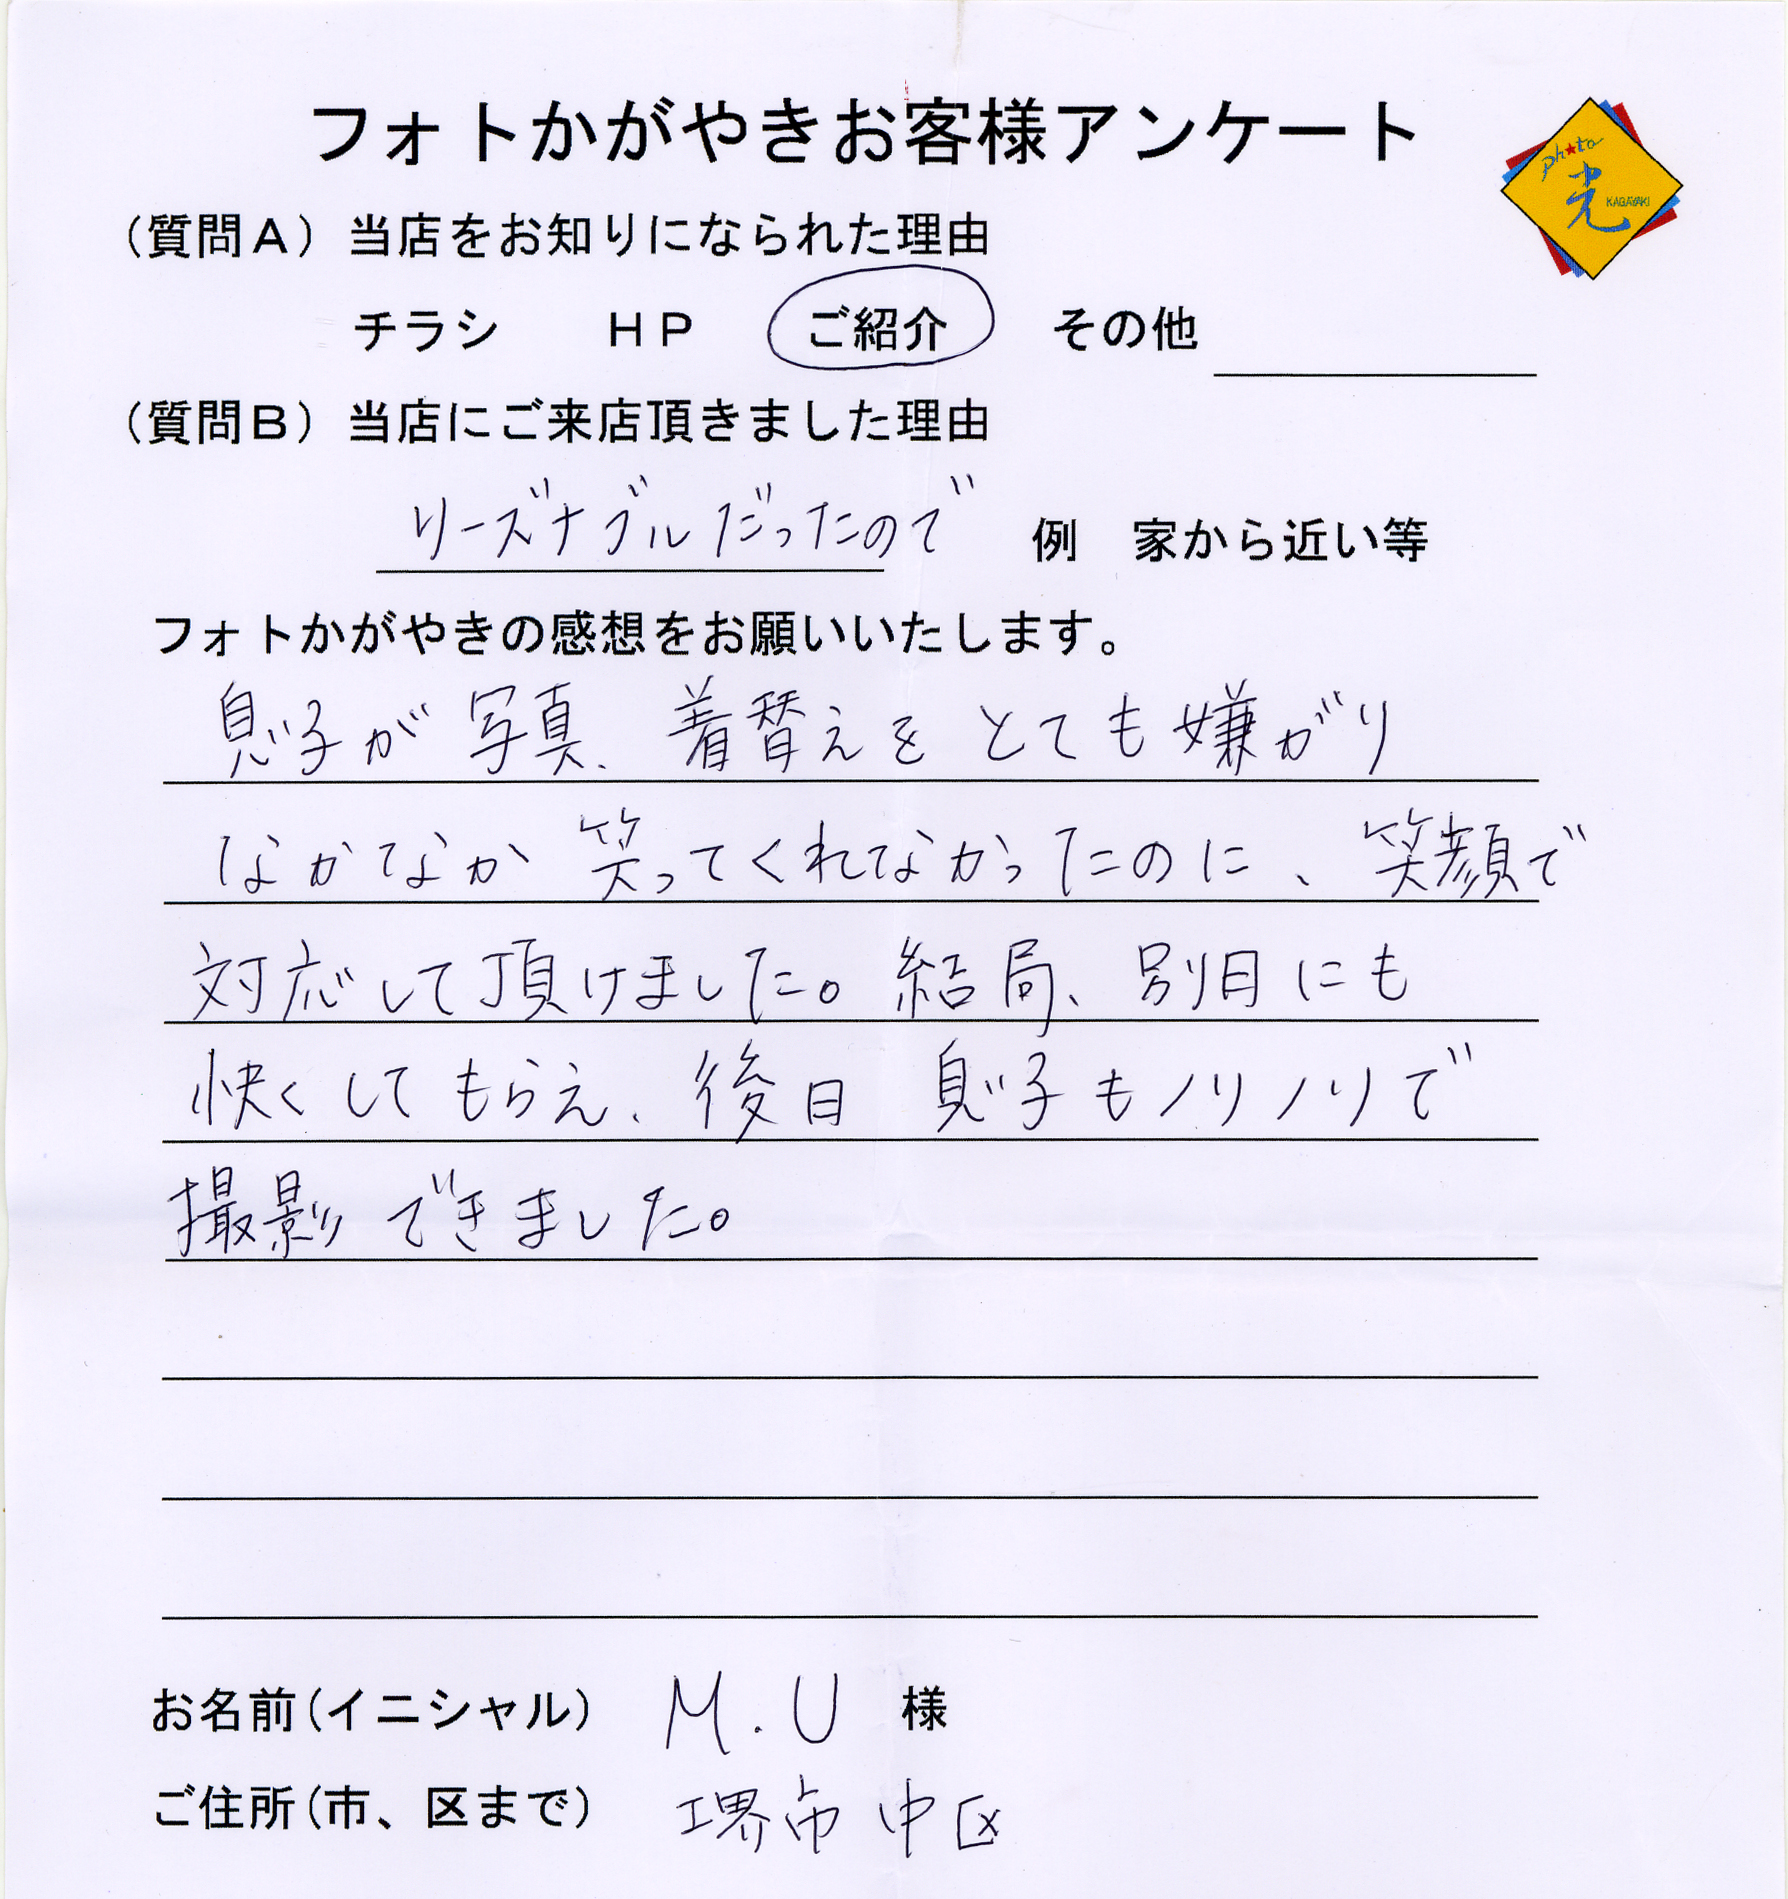 フォトかがやきお客様アンケート
photo 光 KAGAYAKI
（質問Ａ）当店をお知りになられた理由
チラシ　ＨＰ　ご紹介　その他
（質問Ｂ）当店にご来店頂きました理由
リーズナブルだったので　例　家から近い等
フォトかがやきの感想をお願いいたします。
息子が写真、着替えをとても嫌がり
なかなか笑ってくれなかったのに、笑顔で
対応して頂けました。結局、別日にも
快くしてもらえ、後日 息子もノリノリで
撮影できました。
お名前(イニシャル)　M.U 様
ご住所(市、区まで)　堺市中区